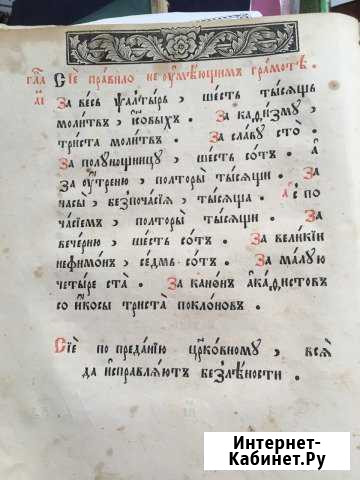 Гла҃ Сїѐ пра́вило не ᲂу҆мѣ́ющимъ гра́мотѣ .
а҃і За ве́сь ѱалты́рь , ше́сть ты́сящъ
моли́твъ , і҆с҃овыхъ . За каѳи́зму ,
три́ста моли́твъ . За сла́вꙋ сто̀ .
За полꙋно́щницꙋ , ше́сть со́тъ . а҃
За ᲂу҆́треню , полторы̀ ты́сящи . За
часы̀ , без̾поча́сїѧ , ты́сяща . а҆ с по
ча́сїемъ , полторы̀ ты́сящи . За
вече́рню , ше́сть со́тъ . За вели́кїи
нефимо́нъ , се́дмь со́тъ . За ма́лꙋю
четы́ре ста̀ . За кано́нъ а҆ка́ѳистовъ
со і҆́косы три́ста покло́новъ .
Сїѐ по преда́нїю цр҃ко́вномꙋ , всѧ̀
да и҆справлѧ́ютъ без̾лѣ́ности .
Интернет-
Кабинет.Ру